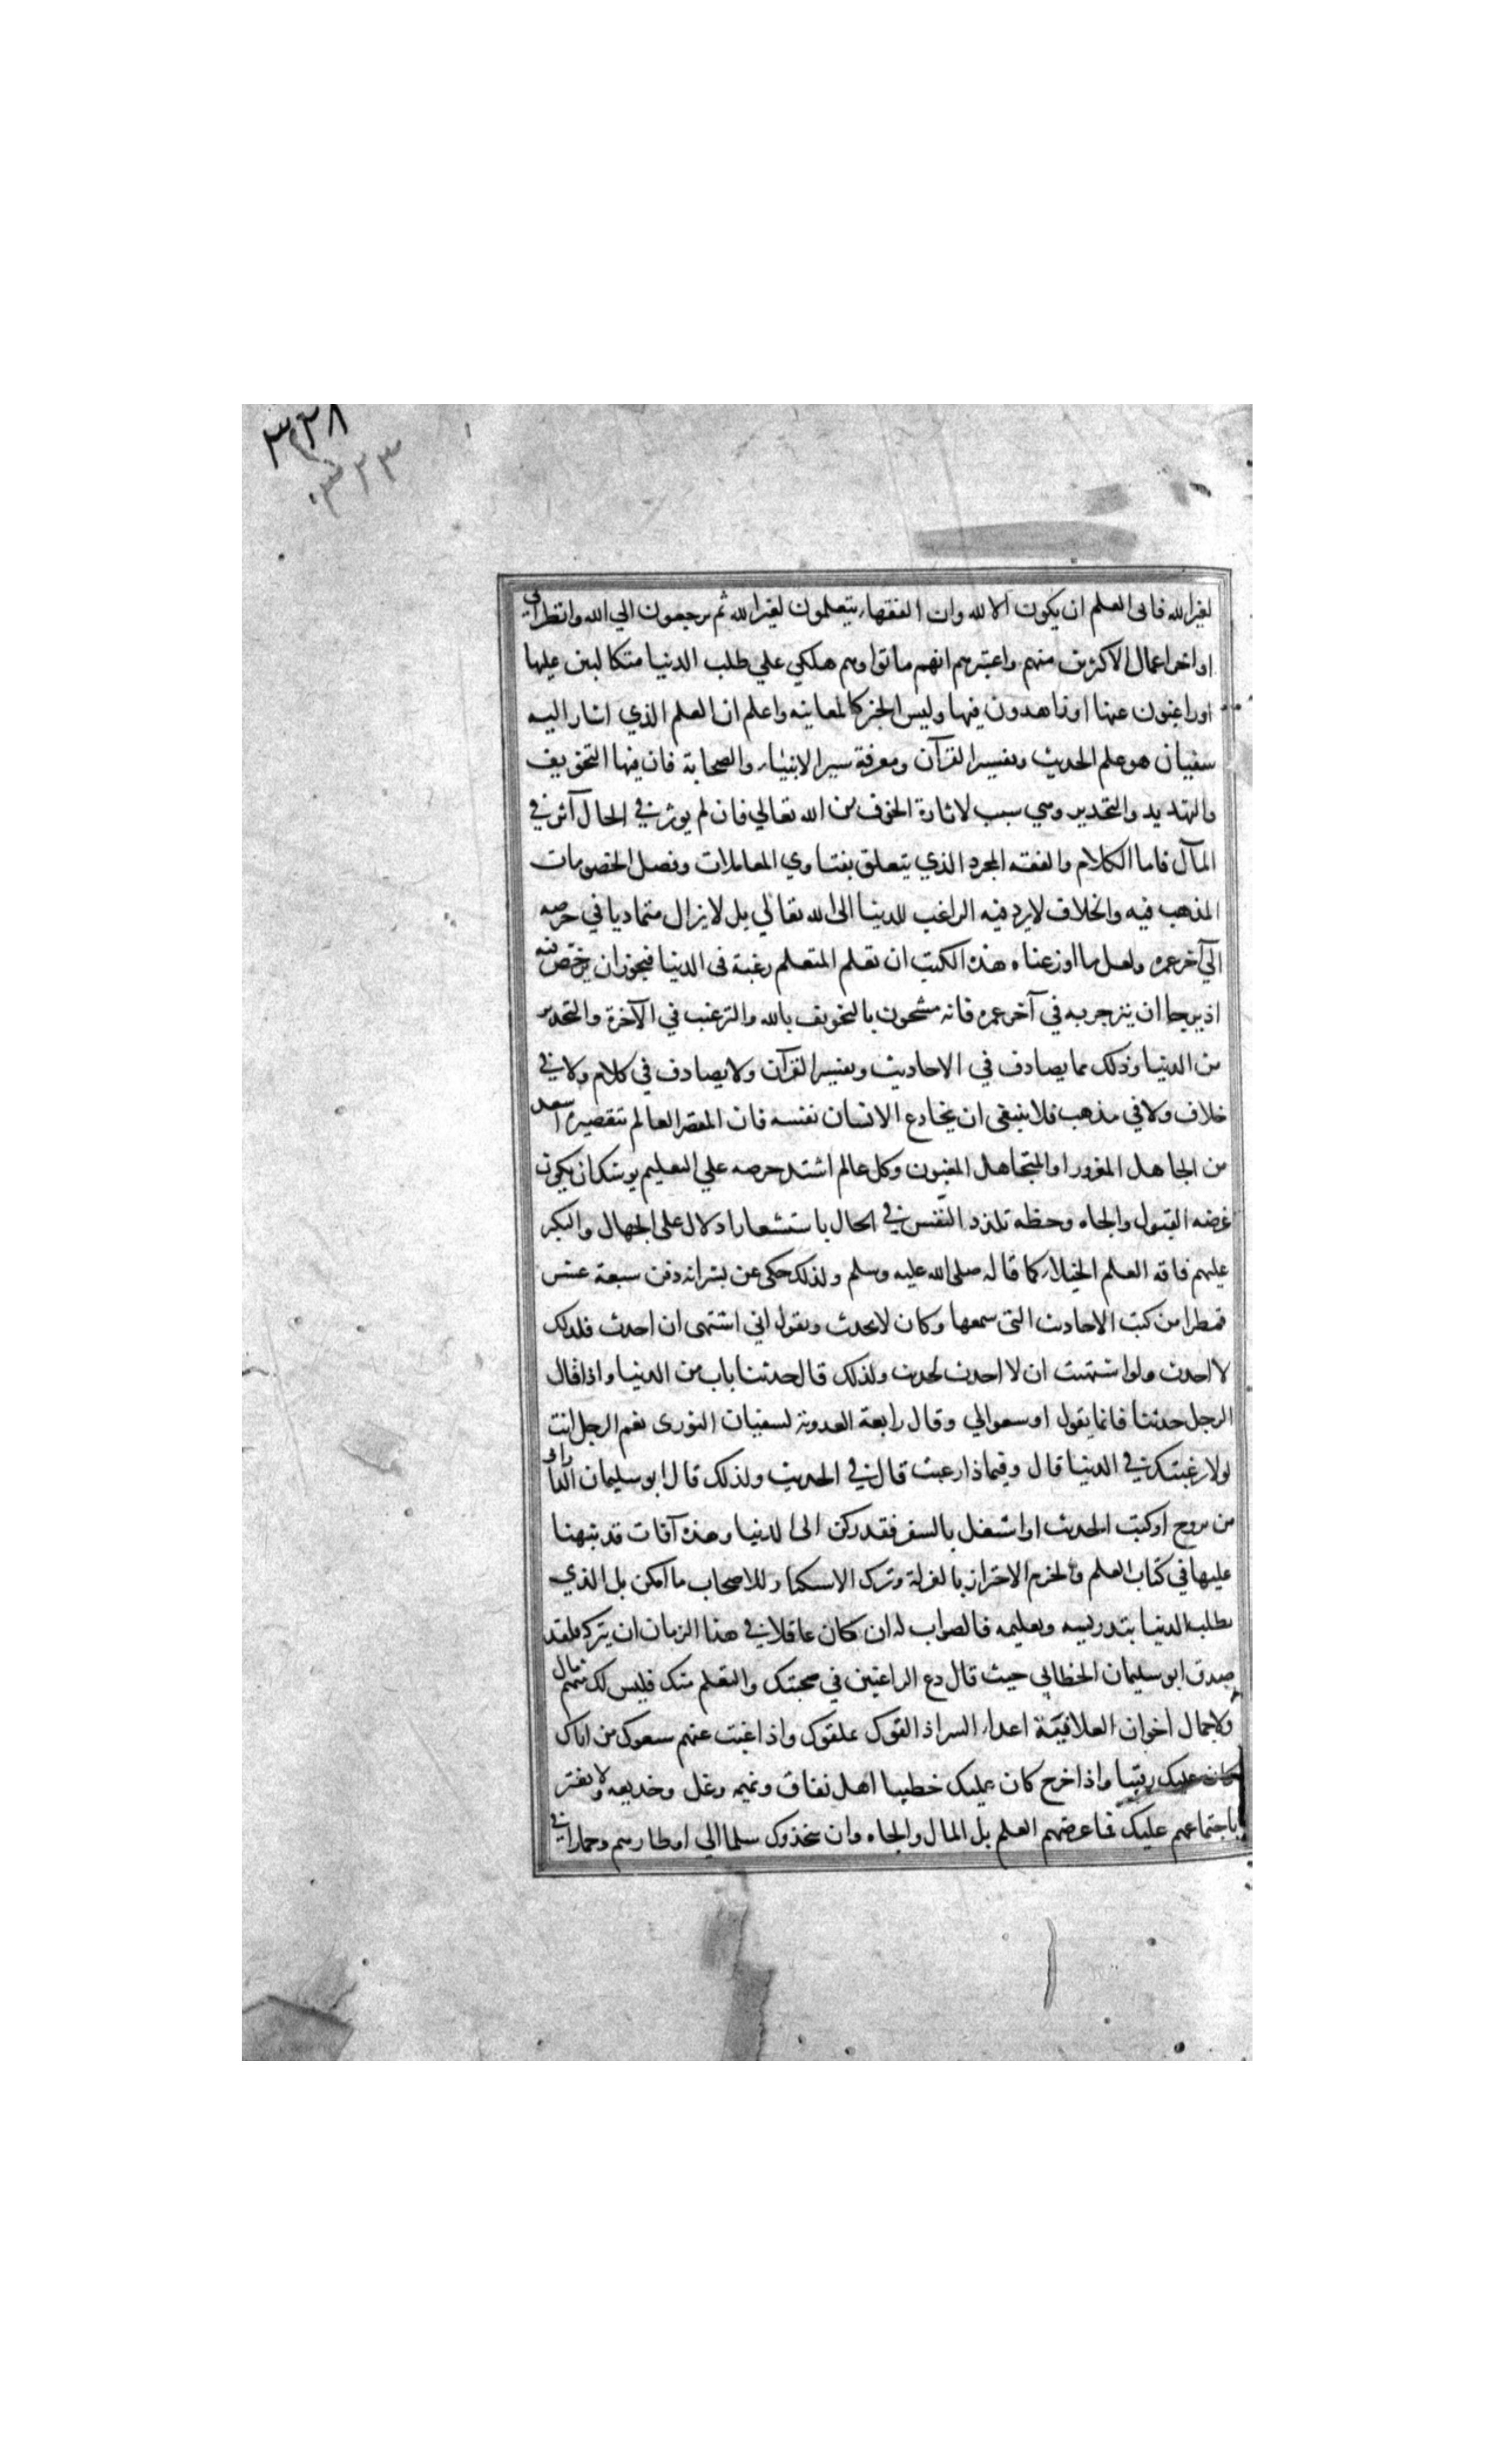 ٣٣٨
٣٣٣
لغير الله فابى العلم ان يكون الا لله وان الفقهاء يتعلمون لغير الله ثم يرجعون الي الله وانظر الى
اواخر اعمال الاكثرين منهم واعتبرهم انهم ماتوا وهم هلكي علي طلب الدنيا متكالبين عليها
اوراغبون عنها او زاهدون فيها وليس الخبر كالمعاينه واعلم ان العلم الذي اشار اليه
سفيان هو علم الحديث وتفسير القرآن ومعرفة سير الانبياء والصحابة فان فيها التخويف
والتهديد والتحدير وهي سبب لاثارة الخوف من الله تعالي فان لم يوثر في الحال آثر في
المآل فاما الكلام والفقه المجرد الذي يتعلق بفتاوي المعاملات وفصل الخصومات
المذهب فيه والخلاف لا يرد فيه الراغب للدنيا الى الله تعالي بل لا يزال متماديا في حرصه
الي آخر عمره ولعل ما اوزعناه هذه الكتب ان تعلم المتعلم رغبة فى الدنيا فيجوز ان يرخص فيه
اذ يرجا ان ينزجر به في آخر عمره فانه مشحون بالتخويف بالله والترغيب في الآخرة والتحدير
من الدنيا وذلك مما يصادف في الاحاديث وتفسير القرآن ولا يصادف في كلام ولا في
خلاف ولا في مذهب فلا ينبغى ان يخادع الانسان نفسه فان المقصر العالم بتقصيره اسعد
من الجاهل المغرور او المتجاهل المغبون وكل عالم اشتد حرصه علي التعليم يوشك ان يكون
غرضه القبول والجاه وحظه تلذد النفس في الحال باستشعار ادلال على الجهال والتكبر
عليهم فاقه العلم الخيلاء كما قاله صلى الله عليه وسلم ولذلك حكى عن بشر انه دفن سبعة عشر
قمطرا من كتب الاحاديث التى سمعها وكان لا يحدث ويقول اني اشتهى ان احدث فلذلك
لا احدث ولو اشتهيت ان لا احدث لحدثت ولذلك قال حدثنا باب من الدنيا واذا قال
الرجل حدثنا فانما يقول اوسعوالي وقال رابعة العدوية لسفيان الثورى نعم الرجل انت
لولا رغبتك في الدنيا قال وفيماذا رغبت قال في الحديث ولذلك قال ابو سليمان الدارانى
من تزوج او كتب الحديث او اشتغل بالسفر فقد ركن الى الدنيا وهذه آفات قد نبهنا
عليها في كتاب العلم والحزم الاحتراز بالعزلة وترك الاستكثار للاصحاب ما امكن بل الذي
يطلب الدنيا بتدريسه وتعليمه فالصواب له ان كان عاقلا في هذا الزمان ان يتركه فلقد
صدق ابو سليمان الخطابي حيث قال دع الراغبين في صحبتك والتعلم منك فليس لك منهم مال
ولا جمال اخوان العلانيّة اعداء السر اذا لقوك علقوك واذا غبت عنهم سعوك من اتاك
كان عليك رقيبا واذا خرج كان عليك خطيبا اهل نفاق ونميمه وغل وخديعه ولا تغتر
باجتماعهم عليك فما غرضهم العلم بل المال والجاه وان يتخذوك سلما الي اوطارهم وحمارا في